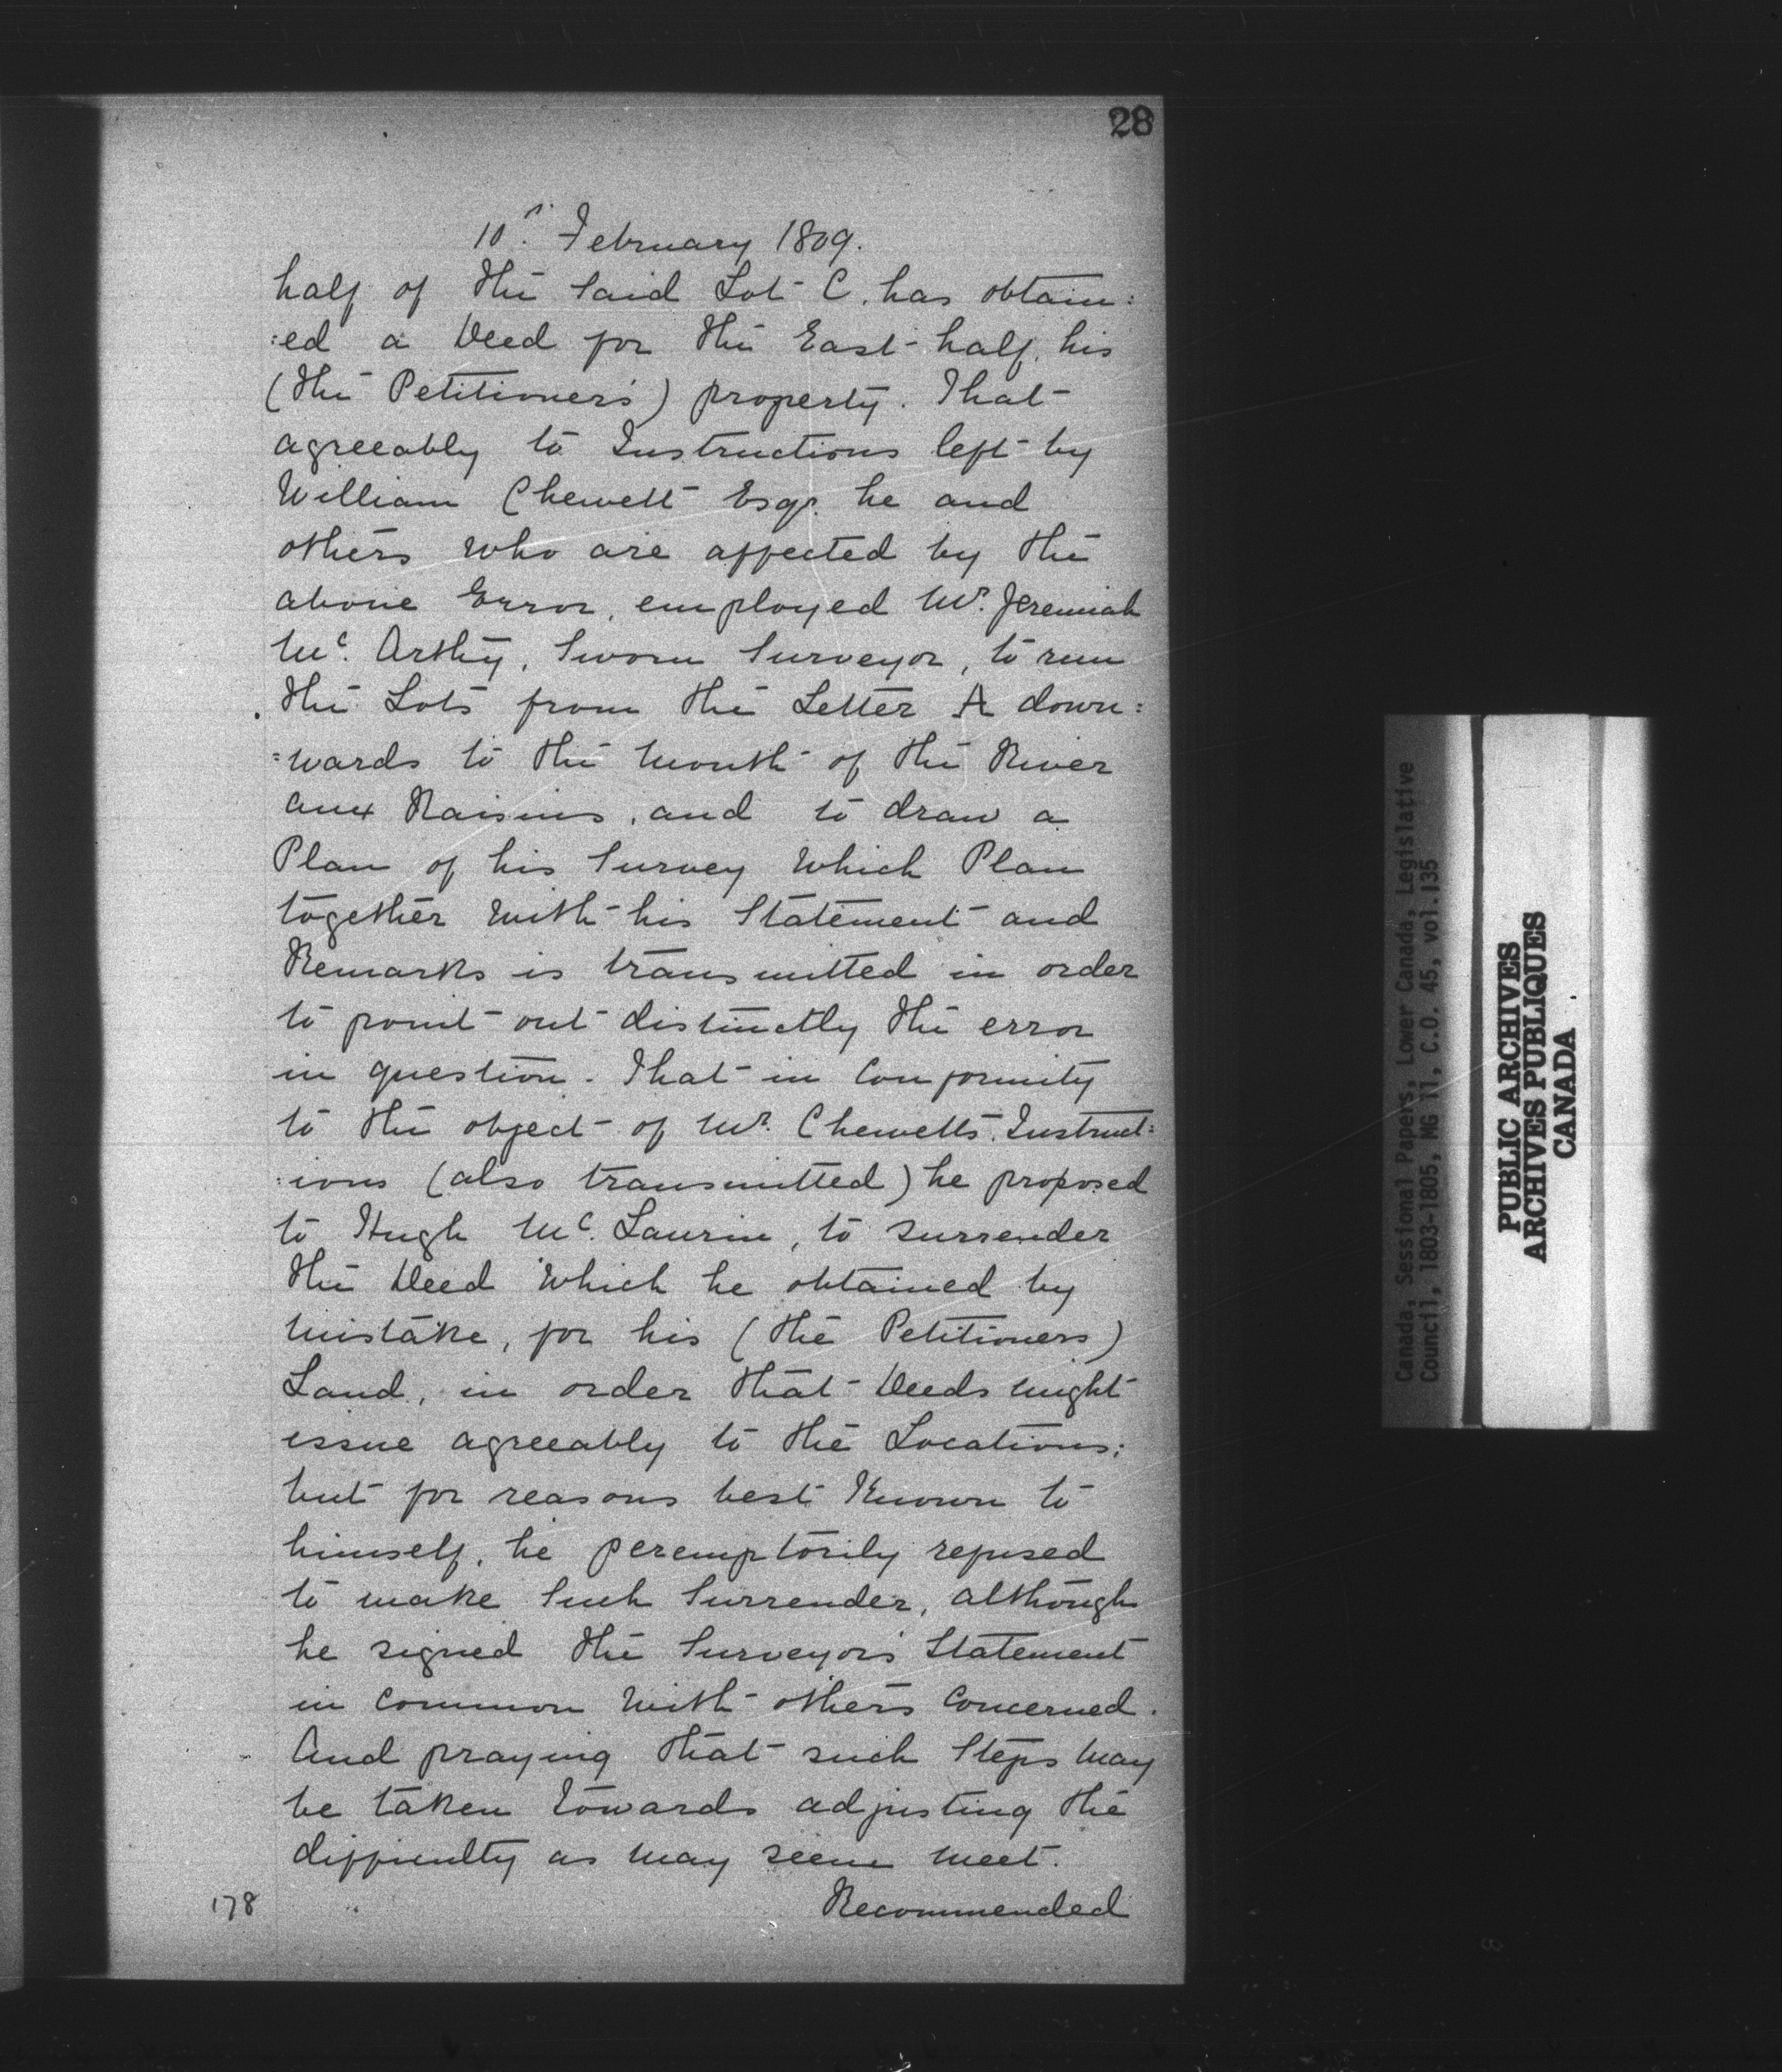 28
10th February 1809.
half of the said Lot C. has obtain:
:ed a Deed for the East half, his
(the Petitioner's) property. That
agreeably to Instructions left by
William Chewett Esqr. he and
others who are affected by the
above Error, employed Mr. Jeremiah
Mc. Arthy, Sworn Surveyor, to run
the Lots from the Letter A down:
=wards to the Mouth of the River
aux Raisins, and to draw a
Plan of his Survey Which Plan
together With his Statement and
Remarks is transmitted in order
to point out distinctly the error
in question. That in Conformity
to the object of Mr. Chewetts Instruct:
:ions (also transmitted) he proposed
to Hugh Mc. Laurin, to surrender
the Deed Which he obtained by
Mistake, for his (the Petitioners)
Land, in order that Deeds might
issue agreeably to the Locations;
but for reasons best Known to
himself, he peremptorily refused
to make such Surrender, although
he signed the Surveyor's Statement
in Common With others Concerned.
And praying that such Steps May
be taken towards adjusting the
difficulty as May seem Meet.
Recommended
178
Canada, Sessional Papers, Lower Canada, Legislative
Council, 1803-1805, MG 11, C.O. 45, vol.135
PUBLIC ARCHIVES
ARCHIVES PUBLIQUES
CANADA